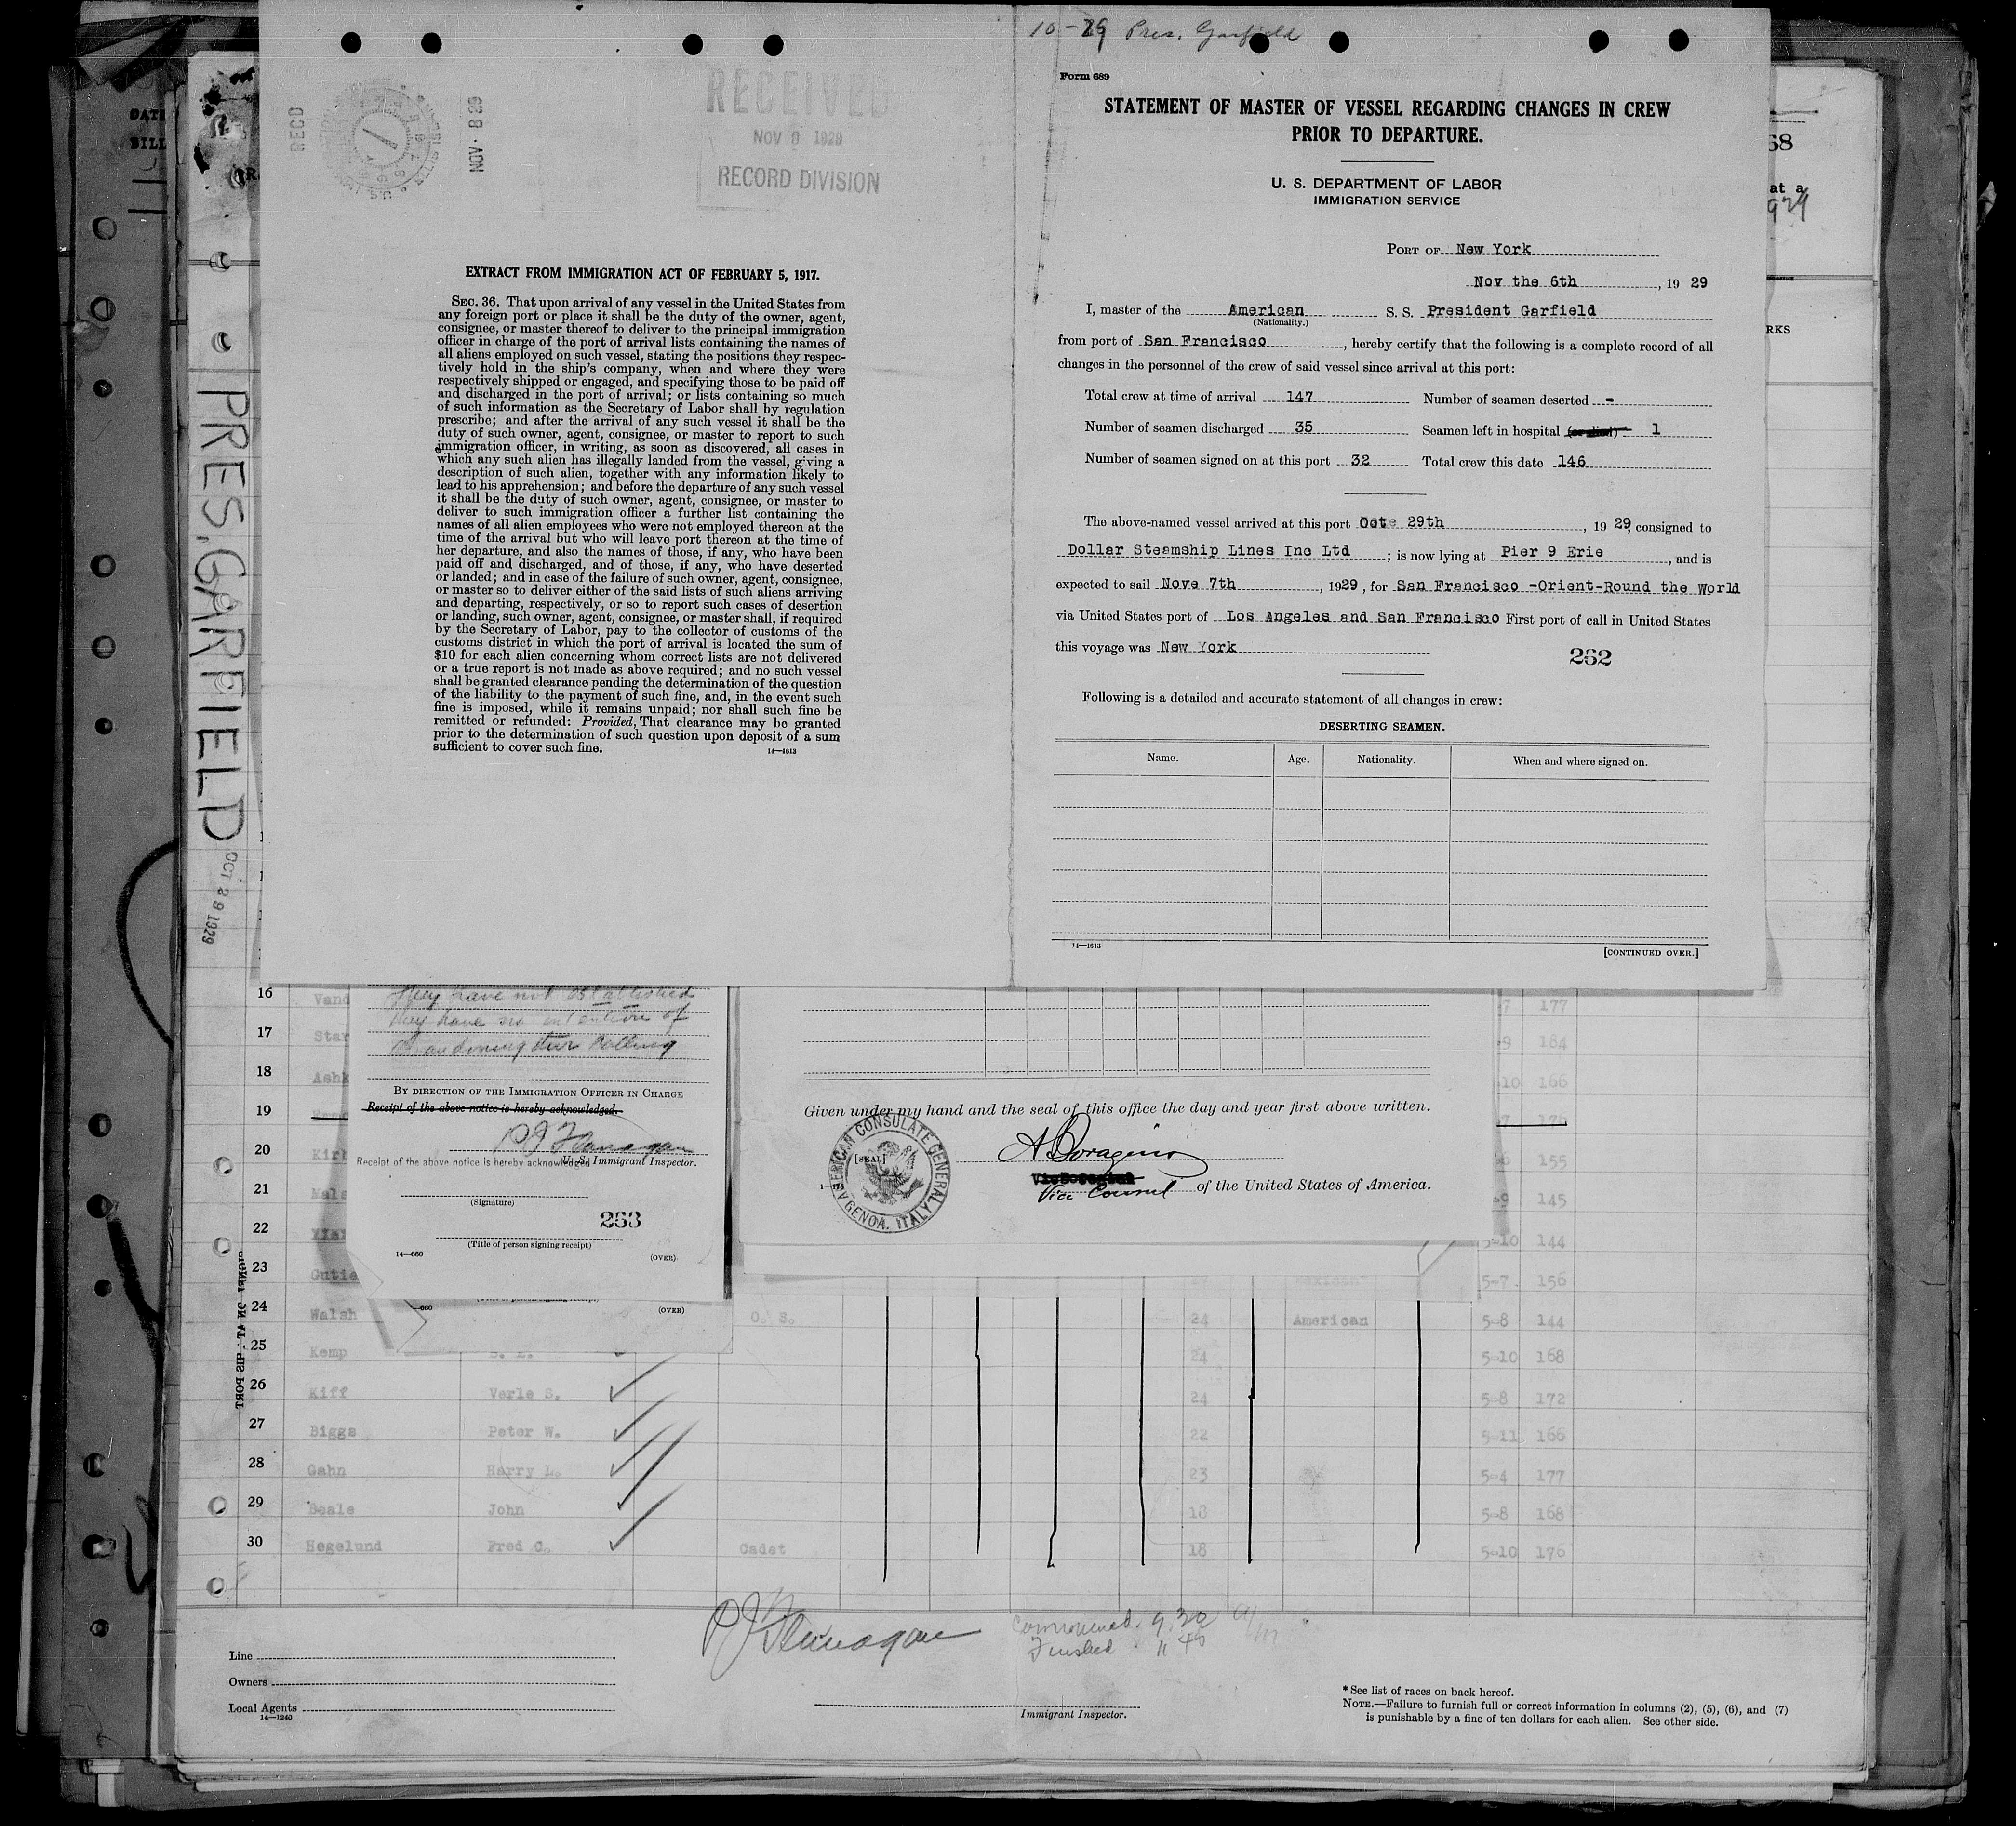 10-29 Pres. Garfield
RECD
NOV 8 29
RECEIVED
NOV 8 1929
RECORD DIVISION
EXTRACT FROM IMMIGRATION ACT OF FEBRUARY 5, 1917.
SEC. 36. That upon arrival of any vessel in the United States from
any foreign port or place it shall be the duty of the owner, agent,
consignee, or master thereof to deliver to the principal immigration
officer in charge of the port of arrival lists containing the names of
all aliens employed on such vessel, stating the positions they respec-
tively hold in the ship's company, when and where they were
respectively shipped or engaged, and specifying those to be paid off
and discharged in the port of arrival; or lists containing so much
of such information as the Secretary of Labor shall by regulation
prescribe; and after the arrival of any such vessel it shall be the
duty of such owner, agent, consignee, or master to report to such
immigration officer, in writing, as soon as discovered, all cases in
which any such alien has illegally landed from the vessel, giving a
description of such alien, together with any information likely to
lead to his apprehension; and before the departure of any such vessel
it shall be the duty of such owner, agent, consignee, or master to
deliver to such immigration officer a further list containing the
names of all alien employees who were not employed thereon at the
time of the arrival but who will leave port thereon at the time of
her departure, and also the names of those, if any, who have been
paid off and discharged, and of those, if any, who have deserted
or landed; and in case of the failure of such owner, agent, consignee,
or master so to deliver either of the said lists of such aliens arriving
and departing, respectively, or so to report such cases of desertion
or landing, such owner, agent, consignee, or master shall, if required
by the Secretary of Labor, pay to the collector of customs of the
customs district in which the port of arrival is located the sum of
$10 for each alien concerning whom correct lists are not delivered
or a true report is not made as above required; and no such vessel
shall be granted clearance pending the determination of the question
of the liability to the payment of such fine, and, in the event such
fine is imposed, while it remains unpaid; nor shall such fine be
remitted or refunded: Provided, That clearance may be granted
prior to the determination of such question upon deposit of a sum
sufficient to cover such fine.
14—1613
Form 689
STATEMENT OF MASTER OF VESSEL REGARDING CHANGES IN CREW
PRIOR TO DEPARTURE.
U. S. DEPARTMENT OF LABOR
IMMIGRATION SERVICE
PORT OF New York
Nov the 6th, 19 29
I, master of the American S. S. President Garfield
(Nationality.)
from port of San Francisco, hereby certify that the following is a complete record of all
changes in the personnel of the crew of said vessel since arrival at this port:
Total crew at time of arrival 147 Number of seamen deserted -
Number of seamen discharged 35 Seamen left in hospital (or died) 1
Number of seamen signed on at this port 32 Total crew this date 146
The above-named vessel arrived at this port Octe 29th, 19 29, consigned to
Dollar Steamship Lines Inc Ltd; is now lying at Pier 9 Erie, and is
expected to sail Nove 7th, 1929, for San Francisco -Orient-Round the World
via United States port of Los Angeles and San Francisco First port of call in United States
this voyage was New York
262
Following is a detailed and accurate statement of all changes in crew:
DESERTING SEAMEN.
Name. Age. Nationality. When and where signed on.
14—1613
[CONTINUED OVER.]
DATE
BILL
PRES. GARFIELD
OCT 29 1929
68
at a
1929
RKS
they have not established
they have no intention of
abandoning their calling
BY DIRECTION OF THE IMMIGRATION OFFICER IN CHARGE
Receipt of the above notice is hereby acknowledged.
P J Flanagan
Receipt of the above notice is hereby acknowledged
U. S. Immigrant Inspector.
(Signature)
263
(Title of person signing receipt)
14—660
(OVER)
660
(OVER)
Given under my hand and the seal of this office the day and year first above written.
AMERICAN CONSULATE GENERAL
GENOA, ITALY
[SEAL]
A Boragino
Vice Consul of the United States of America.
16 Vand 177
17 Star 184
18 Ashk 166
19
20 Kirb 155
21 Mals 145
22 5-10 144
23 Gutie Mexican 5-7 156
24 Walsh O. S. 24 American 5-8 144
25 Kemp 24 5-10 168
26 Kiff Verle S. 24 5-8 172
27 Biggs Peter W. 22 5-11 166
28 Gahn Harry L. 23 5-4 177
29 Beale John 18 5-8 168
30 Hegelund Fred C. Cadet 18 5-10 176
P J Flanagan
Commenced 9.30
Finished 11 45
Line
Owners
Local Agents
14—1240
Immigrant Inspector.
*See list of races on back hereof.
NOTE.—Failure to furnish full or correct information in columns (2), (5), (6), and (7)
is punishable by a fine of ten dollars for each alien. See other side.